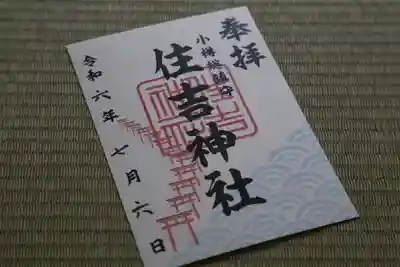 奉拝
小樽総鎮守
住吉神社
令和六年七月六日